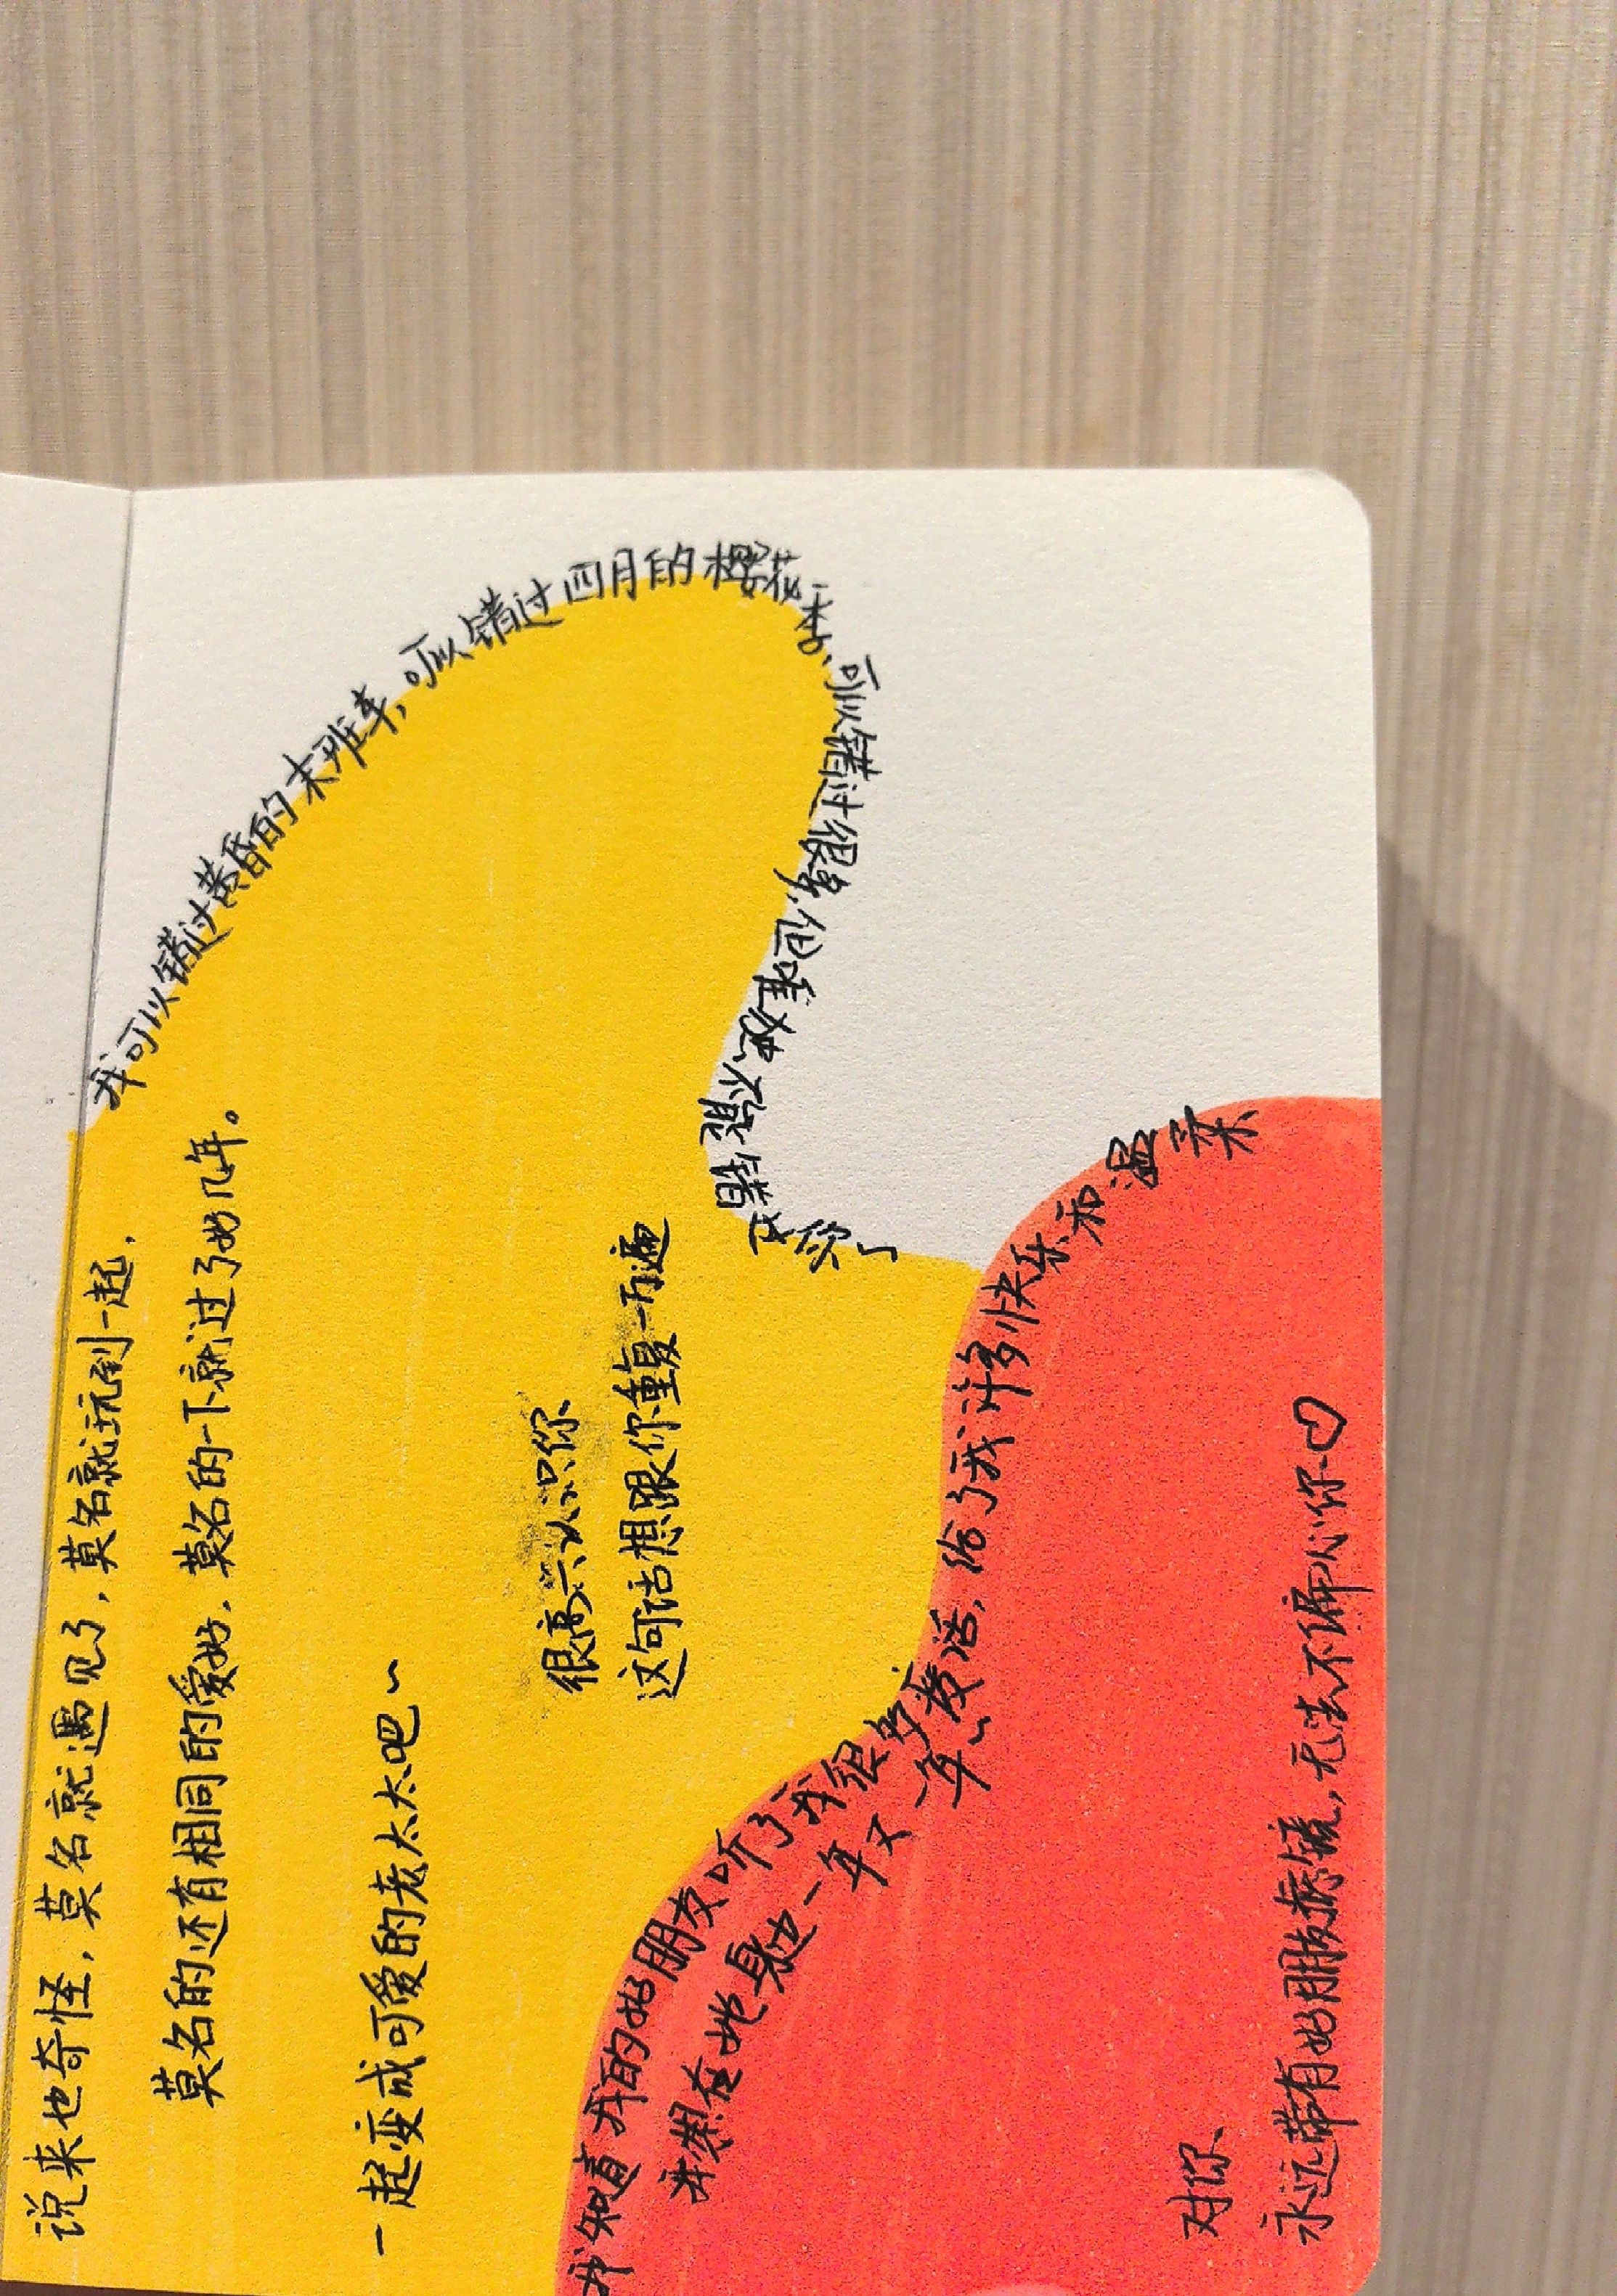 说来也奇怪，莫名就遇见了，莫名就玩到一起，
莫名的还有相同的爱好，莫名的一下就过了好几年。
我可以错过黄昏的末班车，可以错过四月的樱花季、可以错过很多，但唯独不想错过你了
一起变成可爱的老太太吧~
很高兴认识你
这句话想跟你重复一万遍
我知道我的好朋友听了我很多废话，给了我许多快乐和温柔
我想在她身边一年又一年~
对你
永远带有好朋友滤镜，无法不偏心你♡